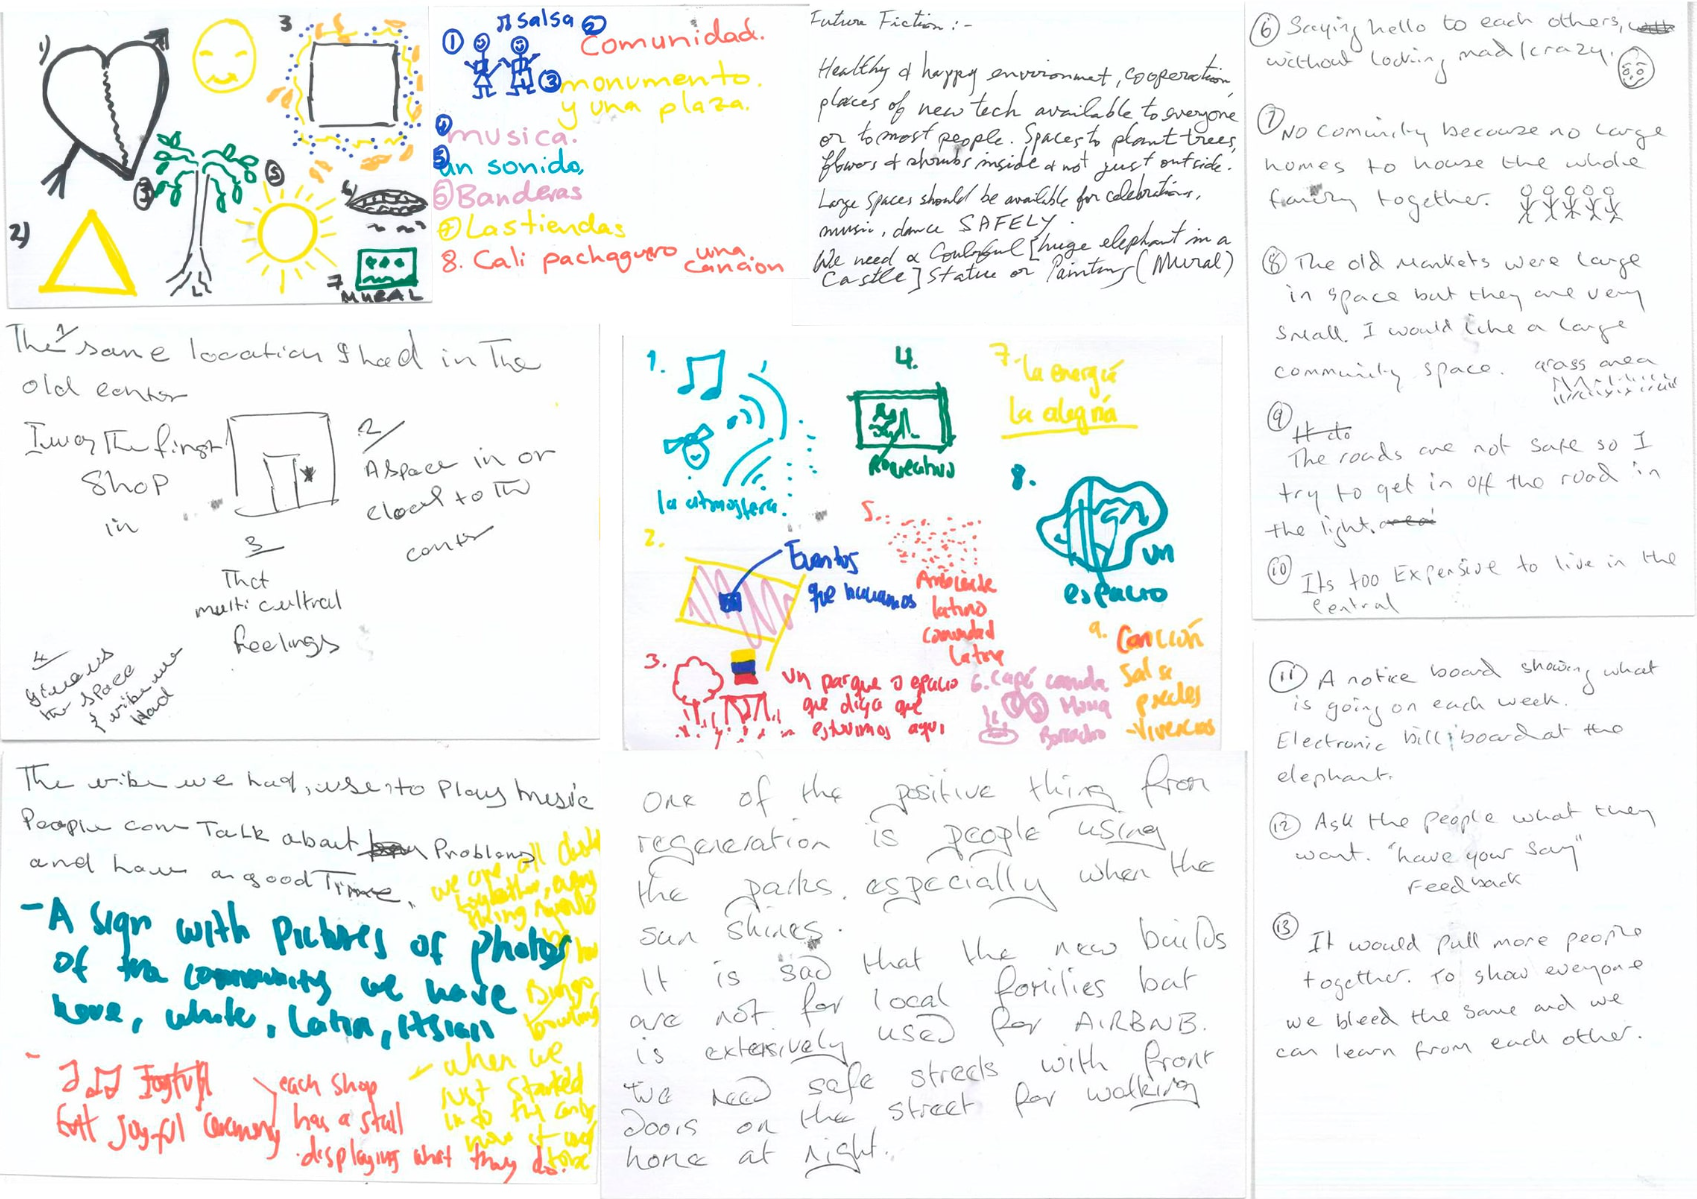 1)
3
2)
3
5
6
7
MURAL
salsa
1
2 Comunidad.
3 monumento.
y una plaza.
4 musica.
5 un sonido,
6 Banderas
7 Las tiendas
8. Cali pachaguero una
cancion
Future Fiction :-
Healthy & happy environmet, cooperation,
places of new tech available to everyone
or to most people. Spaces to plant trees,
flowers & shrubs inside & not just outside.
Large spaces should be available for celebrations,
music, dance SAFELY.
We need a Coulouful [huge elephant in a
Castle] Statue or Painting (Mural)
6 Saying hello to each others,
without looking mad/crazy.
7 No cominity because no large
homes to house the whole
family together.
8 The old markets were large
in space but they are very
small. I would like a large
community space. grass area
9 It do
The roads are not safe so I
try to get in off the road in
the light. area
10 Its too Expensive to live in the
central
The 1 same location I had in The
old center
I was The first
Shop
in
2
A space in or
closer to The
center
3
That
multi cultral
feelings
4
the space
& vibe we
had
1.
la atmosfera.
2.
Eventos
que hiciamos
3.
un parque o espacio
que diga que
estuvimos aqui
4.
Recreativo
5.
Ambiente
latino
comunidad
latina
6. Café comida
7. La energía
la alegría
8.
un
espacio
9. Canción
Salsa
-Vivencias
The vibe we had, use to Play Music
People come Talk about Problems
and have a good Time.
we are all
together, every
thing
Bingo,
bowling
- A sign with Pictures of photos
of the community we have
here, white, Latin,
- Joyful
Joyful Ceremony
each shop
has a stall
displaying what they do.
- when we
just started
in to the
now it used
to be
One of the positive thing from
regeneration is people using
the parks. especially when the
sun shines.
It is sad that the new builds
are not for local families but
is extensively used for AIRBNB.
We need safe streets with front
doors on the street for walking
home at night.
11 A notice board showing what
is going on each week.
Electronic billiboard at the
elephant.
12 Ask the people what they
want. "have your say"
Feedback
13 It would pull more people
together. To show everyone
we bleed the same and we
can learn from each other.